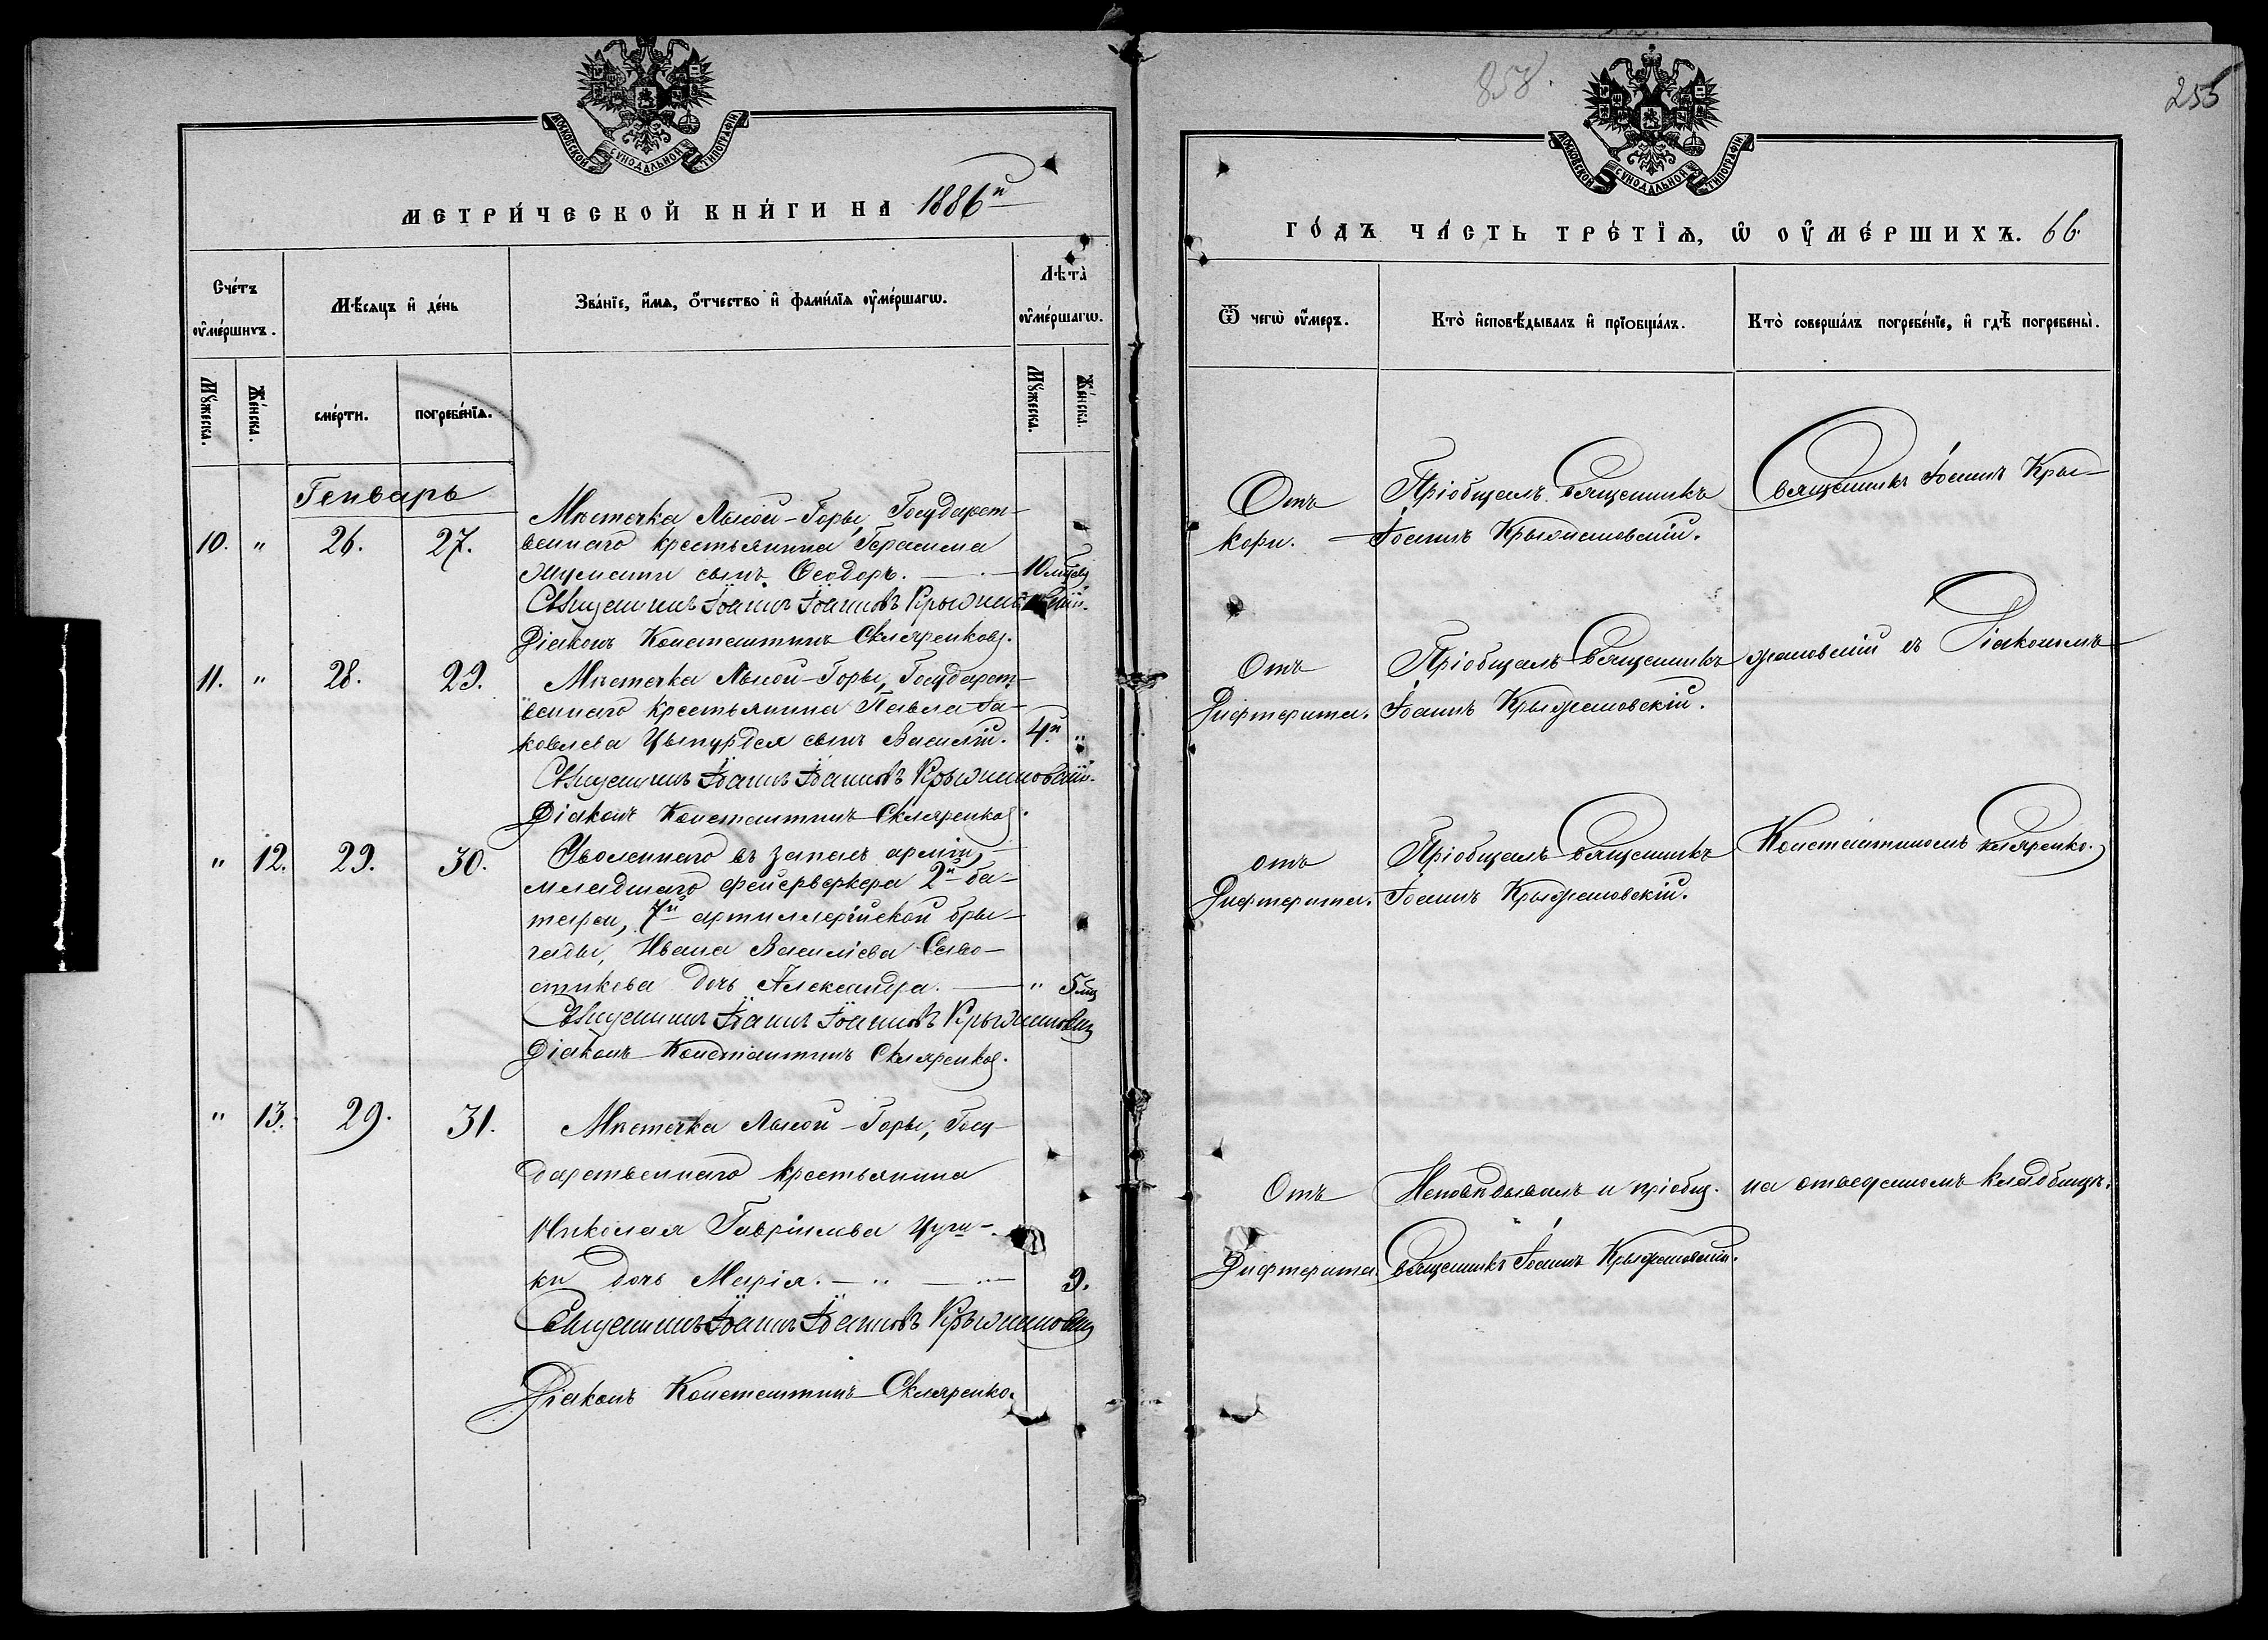 МОСКОВСКОЙ СУНОДАЛЬНОЙ ТИПОГРАФІИ
МЕТРИ́ЧЕСКОЙ КНИ́ГИ НА 1886й
Сче́тъ оу҆ме́ршихъ.
Мѣ́сяцъ и҆ де́нь
Зва́нїе, и҆́мя, ѻ҆́тчество и҆ фами́лїя оу҆ме́ршагѡ.
Лѣта̀ оу҆ме́ршагѡ.
Мꙋ́жеска.
Же́нска.
сме́рти.
погребе́нїѧ.
Мꙋ́жеска.
Же́нска.
Генварь
10. " 26. 27.
Мѣстечка Лысой-Горы, Государст-
веннаго крестьянина Герасима
сынъ Ѳеодоръ. — 10 мцевъ
Священникъ Іоаннъ Іоанновъ Крыжановскій.
Діаконъ Константинъ Скляренковъ.
11. " 28. 29.
Мѣстечка Лысой-Горы, Государст-
веннаго крестьянина Павла Яа-
ковлева сынъ Василій. 4й "
Священникъ Іоаннъ Іоанновъ Крыжановскій.
Діаконъ Константинъ Скляренковъ.
" 12. 29. 30.
Уволеннаго въ запасъ арміи,
младшаго фейерверкера 2й ба-
тареи, 7й артиллерійской бри-
гады, Ивана Василіева Саво-
стикова дочь Александра. — " 5 мц
Священникъ Іоаннъ Іоанновъ Крыжановскій
Діаконъ Константинъ Скляренковъ.
" 13. 29. 31.
Мѣстечка Лысой-Горы, Госу-
дарственнаго крестьянина
Николая Гавріилова
дочь Марія. — " — 9.
Священникъ Іоаннъ Іоанновъ Крыжановскій
Діаконъ Константинъ Скляренко.
858.
255
МОСКОВСКОЙ СУНОДАЛЬНОЙ ТИПОГРАФІИ
ГО́ДЪ ЧА́СТЬ ТРЕ́ТЇѦ, Ѡ҆ ОУ҆МЕ́РШИХЪ. 66.
Ѿ чегѡ̀ оу҆́меръ.
Кто̀ и҆сповѣ́дывалъ и҆ прїобща́лъ.
Кто̀ соверша́лъ погребе́нїе, и҆ гдѣ̀ погребены̀.
Отъ
кори.
Пріобщалъ Священникъ
Іоаннъ Крыжановскій.
Священникъ Іоаннъ Кры-
Отъ
Дифтерита.
Пріобщалъ Священникъ
Іоаннъ Крыжановскій.
жановскій съ Діакономъ
отъ
Дифтерита.
Пріобщалъ Священникъ
Іоаннъ Крыжановскій.
Константиномъ Скляренко.
Отъ
Дифтерита.
Исповѣдывалъ и пріобщ.
Священникъ Іоаннъ Крыжановскій.
на отведенномъ кладбищѣ.